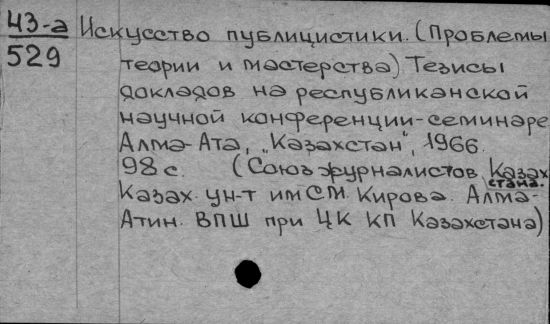 43-а Искусство публицистики. (Проблемы
529 теории и мастерства). Тезисы
докладов на республиканской
научной конференции-семинаре
Алма-Ата, „Казахстан", 1966.
98 с. (Союз журналистов Казах
стана.
Казах. ун-т им С.М. Кирова. Алма-
Атин. ВПШ при ЦК КП Казахстана)